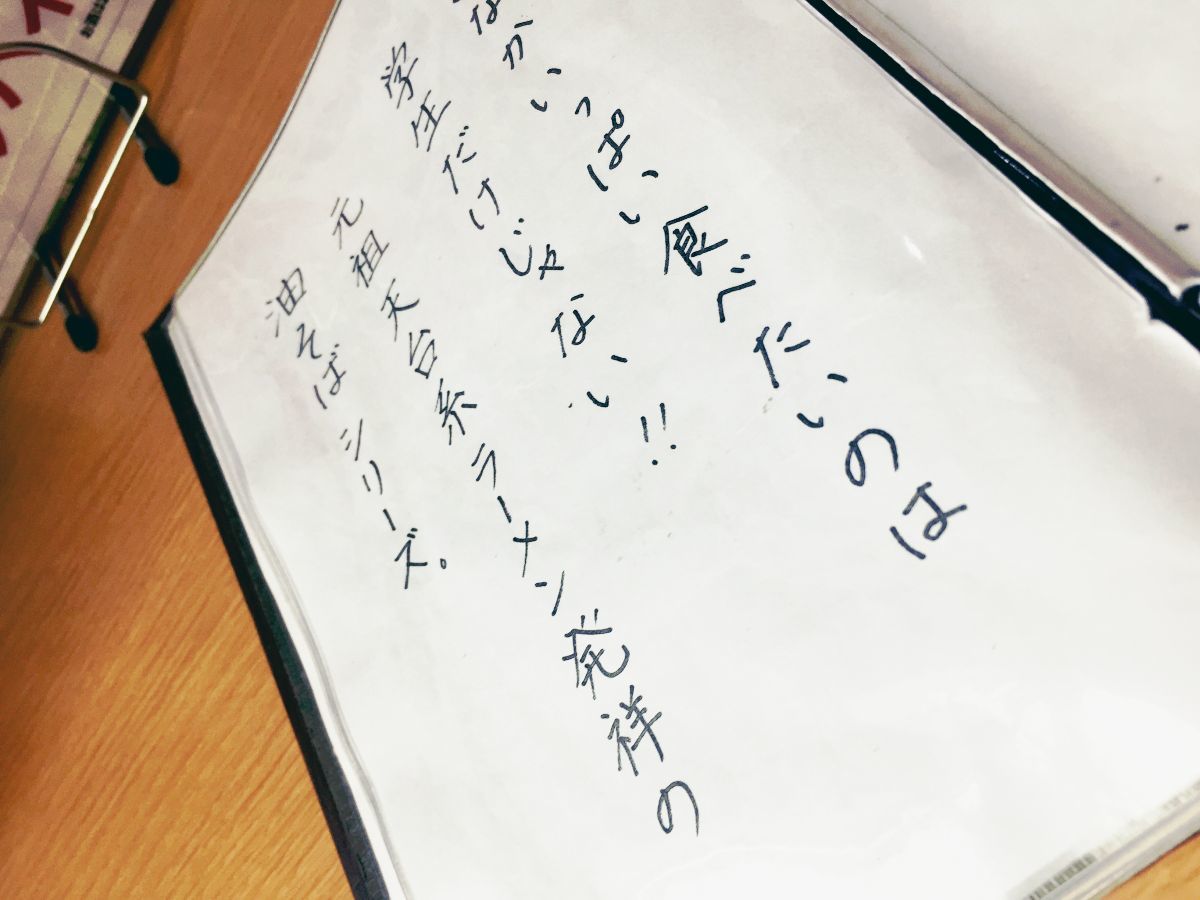 なかいっぱい食べたいのは
学生だけじゃない!!
元祖天台系ラーメン発祥の
油そばシリーズ。